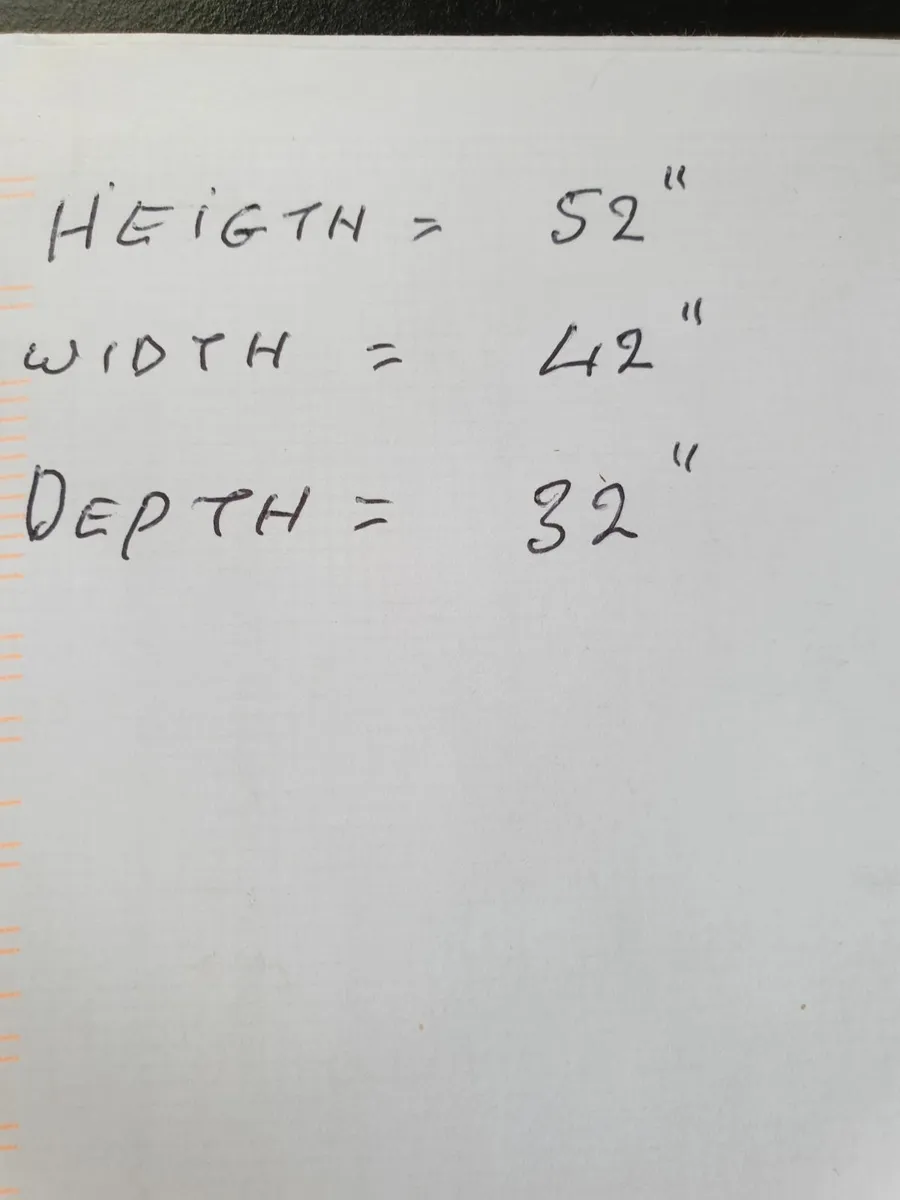 HEIGTH = 52"
WIDTH = 42"
DEPTH = 32"